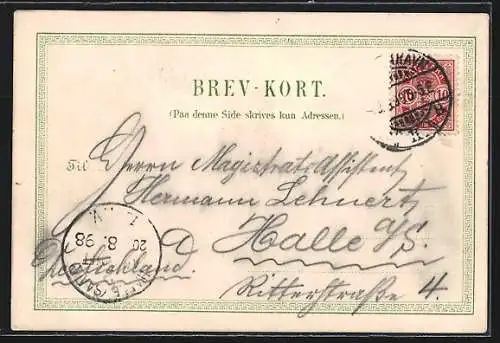 BREV-KORT.
(Paa denne Side skrives kun Adressen.)
Til Herrn Magistrats Assistent
Hermann Lehnert
Halle a/S.
Deutschland.
Ritterstraße 4.
10
20 8 98